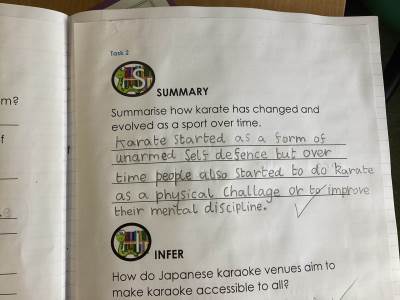 m?
f
Task 2
S
SUMMARY
Summarise how karate has changed and
evolved as a sport over time.
Karate started as a form of
unarmed self defence but over
time people also started to do karate
as a physical challage or to improve
their mental discipline.
INFER
How do Japanese karaoke venues aim to
make karaoke accessible to all?